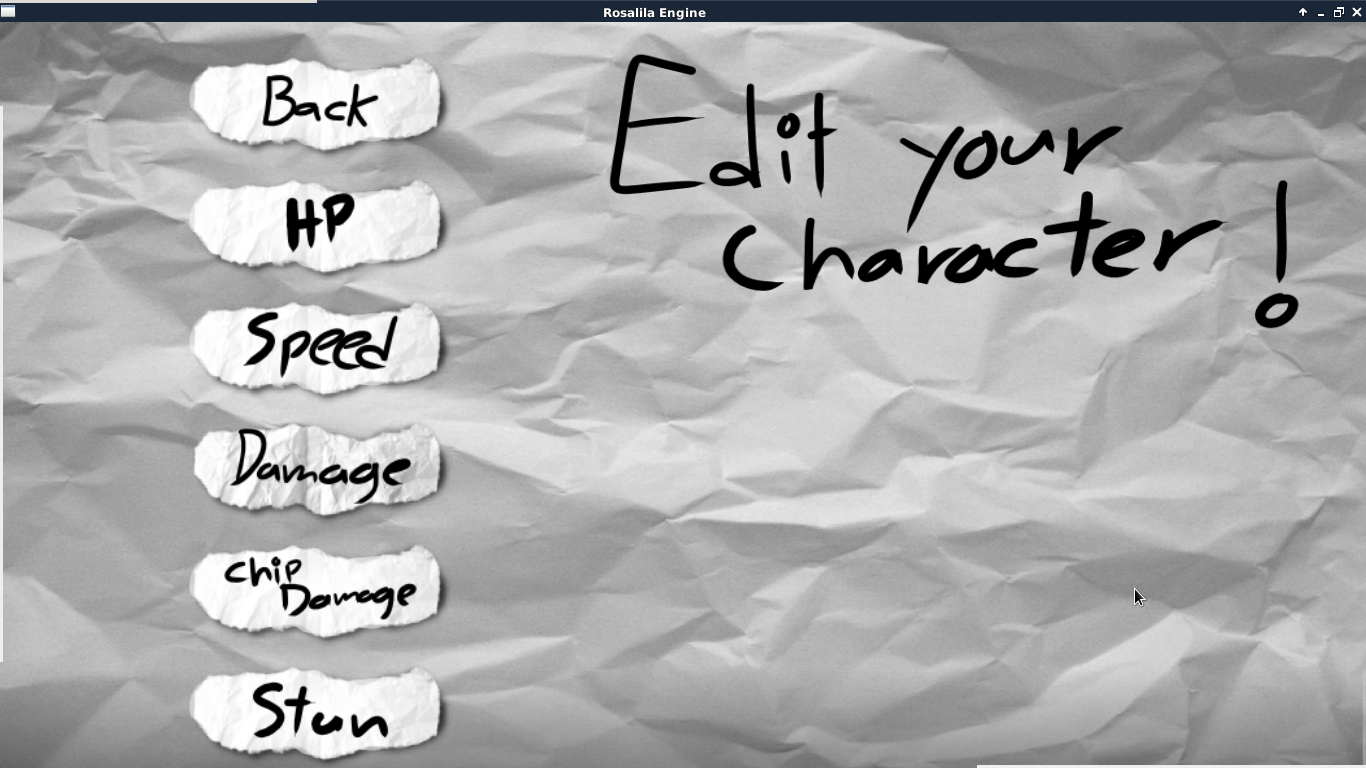 Rosalila Engine
Back
HP
Speed
Damage
chip
Damage
Stun
Edit your
character!